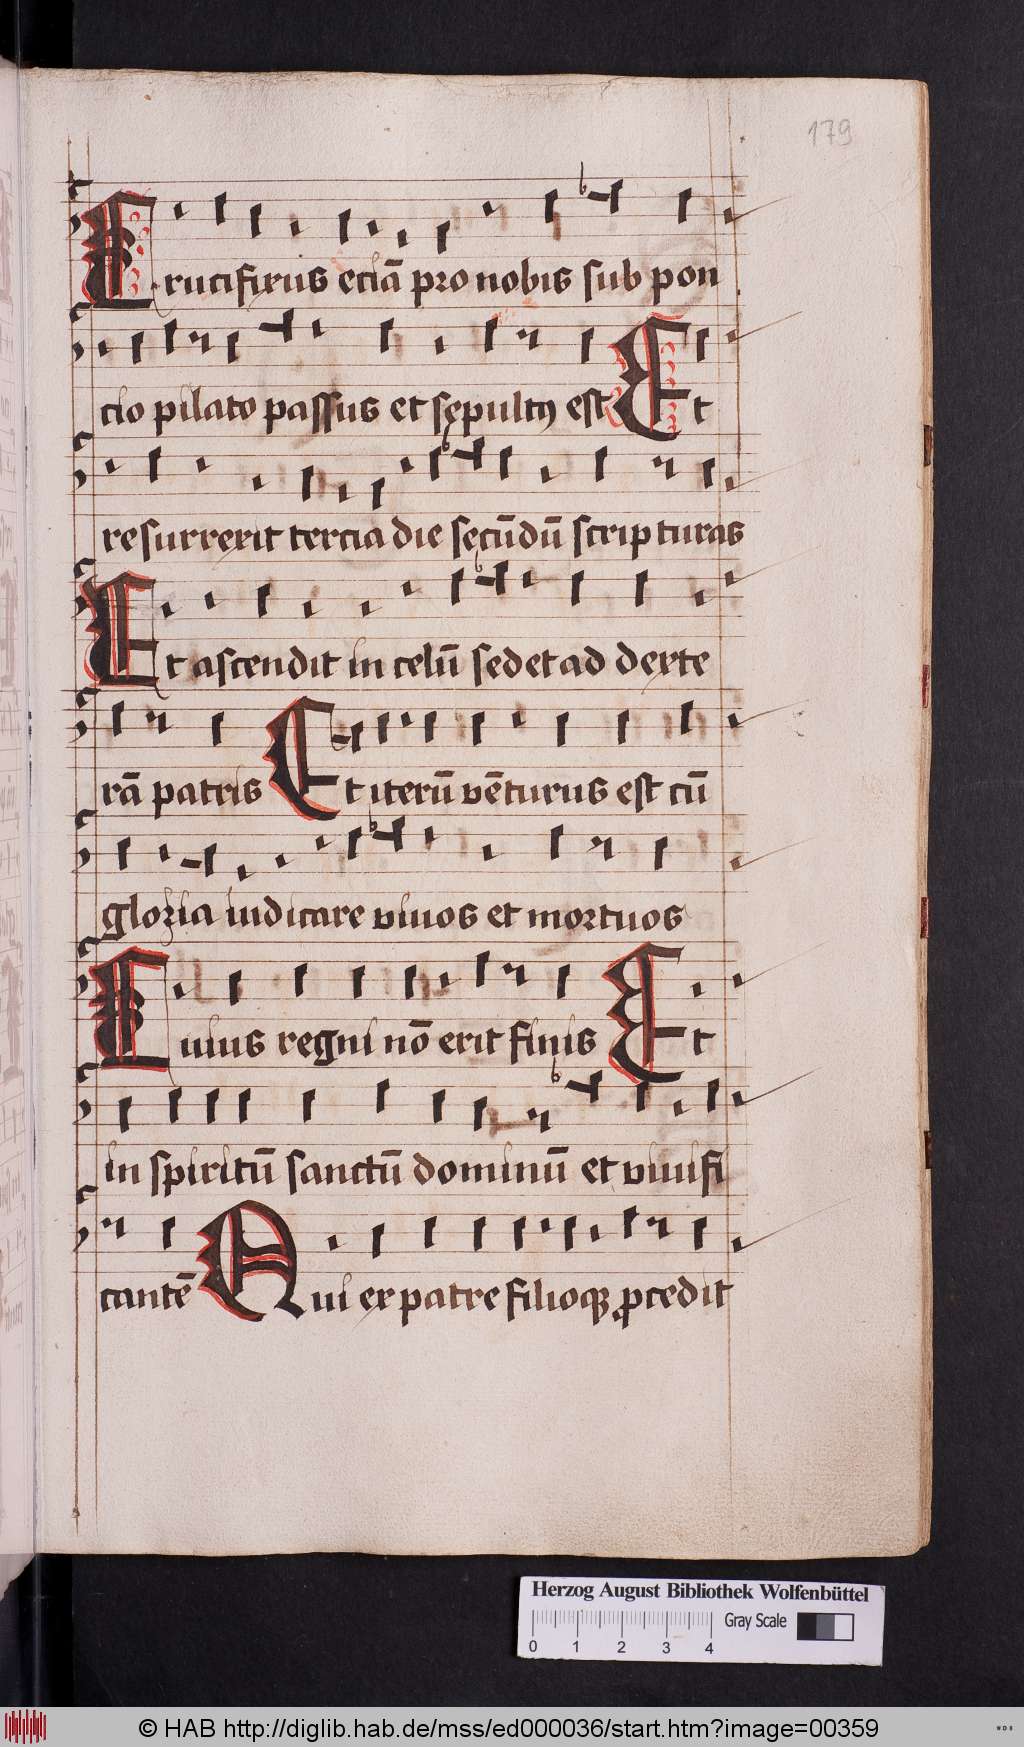 179
Crucifixus eciā pro nobis sub pon
cio pilato passus et sepultꝰ est Et
resurrexit tercia die secūdū scripturas
Et ascendit in celū sedet ad dexte
rā patris Et iterū vēturus est cū
gloria iudicare viuos et mortuos
Cuius regni nō erit finis Et
in spiritū sanctū dominū et viuifi
cantē Qui ex patre filioqꝫ ꝓcedit
Herzog August Bibliothek Wolfenbüttel
0 1 2 3 4 Gray Scale
© HAB http://diglib.hab.de/mss/ed000036/start.htm?image=00359